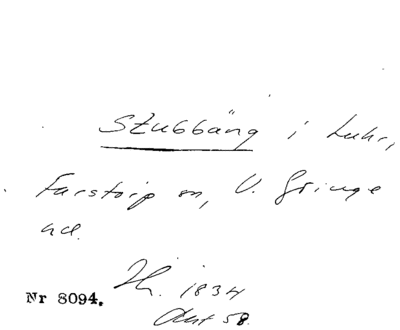 Stubbäng i Luhr,
Farstorp sn, V. Göinge
hd.
Nr 8094. Hh. 1834
Akt 58.